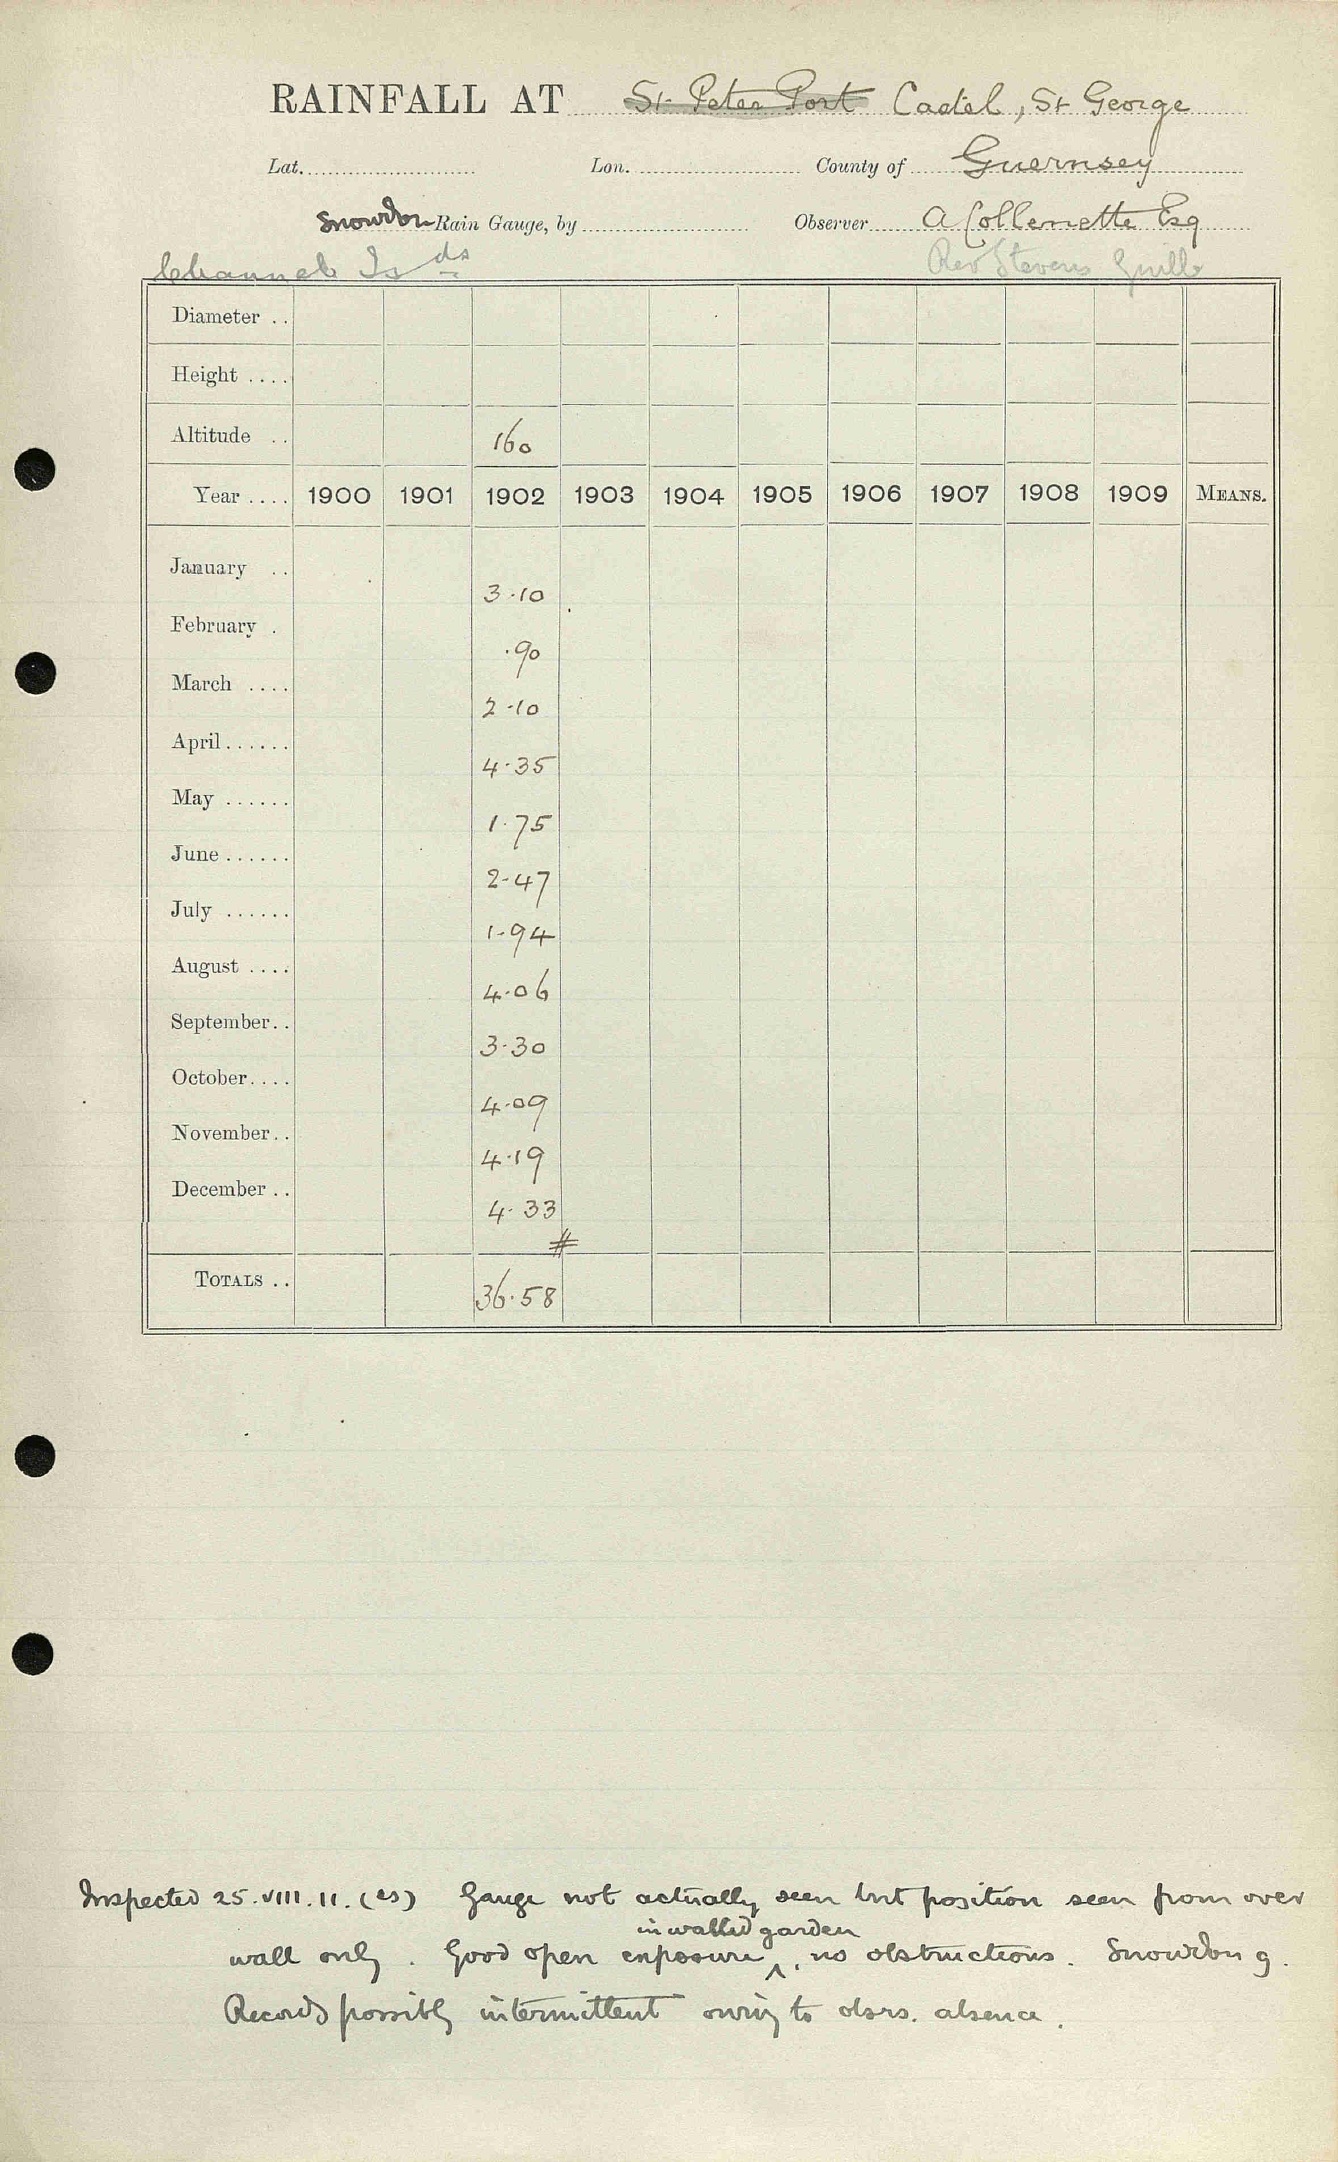 RAINFALL AT St Peter Port Castel, St George
Lat. Lon. County of Guernsey
Snowdon Rain Gauge, by Observer A Collenette Esq
Channel Is ds Rev Stevens Guille
Diameter ..
Height ....
Altitude .. 160
Year .... 1900 1901 1902 1903 1904 1905 1906 1907 1908 1909 MEANS.
January .. 3.10
February . .90
March .... 2.10
April...... 4.35
May ...... 1.75
June...... 2.47
July ...... 1.94
August .... 4.06
September.. 3.30
October.... 4.09
November.. 4.19
December .. 4.33
#
TOTALS .. 36.58
Inspected 25.VIII.11. (es) Gauge not actually seen but position seen from over
in walled garden
wall only. Good open exposure ^, no obstructions. Snowdon g.
Records possibly intermittent owing to obsrs. absence.